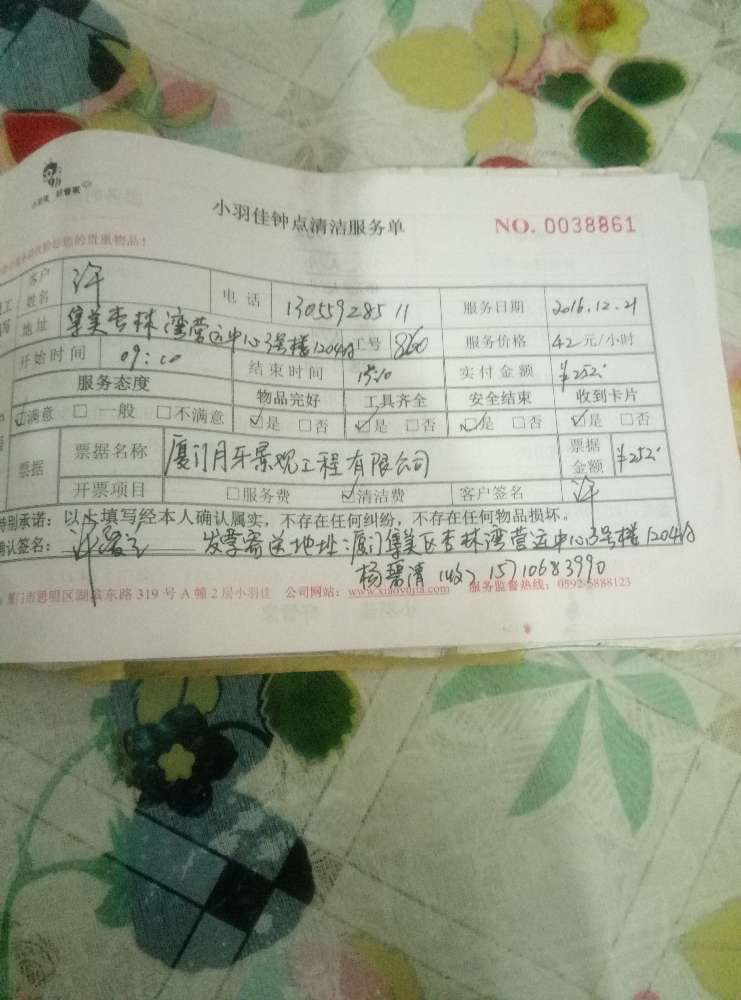 小羽佳 好管家
小羽佳钟点清洁服务单
NO. 0038861
您的贵重物品!
客户姓名 许 电话 13055928511 服务日期 2016.12.21
地址 集美杏林湾营运中心3号楼1204 工号 860 服务价格 42元/小时
开始时间 09:10 结束时间 15:10 实付金额 ¥252.
服务态度 物品完好 工具齐全 安全结束 收到卡片
☑满意 □一般 □不满意 ☑是 □否 ☑是 □否 ☑是 □否 ☑是 □否
票据 票据名称 厦门月牙景观工程有限公司 票据金额 ¥252.
开票项目 □服务费 ☑清洁费 客户签名 许
特别承诺:以上填写经本人确认属实,不存在任何纠纷,不存在任何物品损坏。
确认签名:许 发票寄送地址:厦门集美区杏林湾营运中心3号楼1204
杨碧清(收) 15710683990
厦门市思明区湖滨东路319号A幢2层小羽佳 公司网站:www.xiaoyujia.com 服务监督热线:0592-5888123